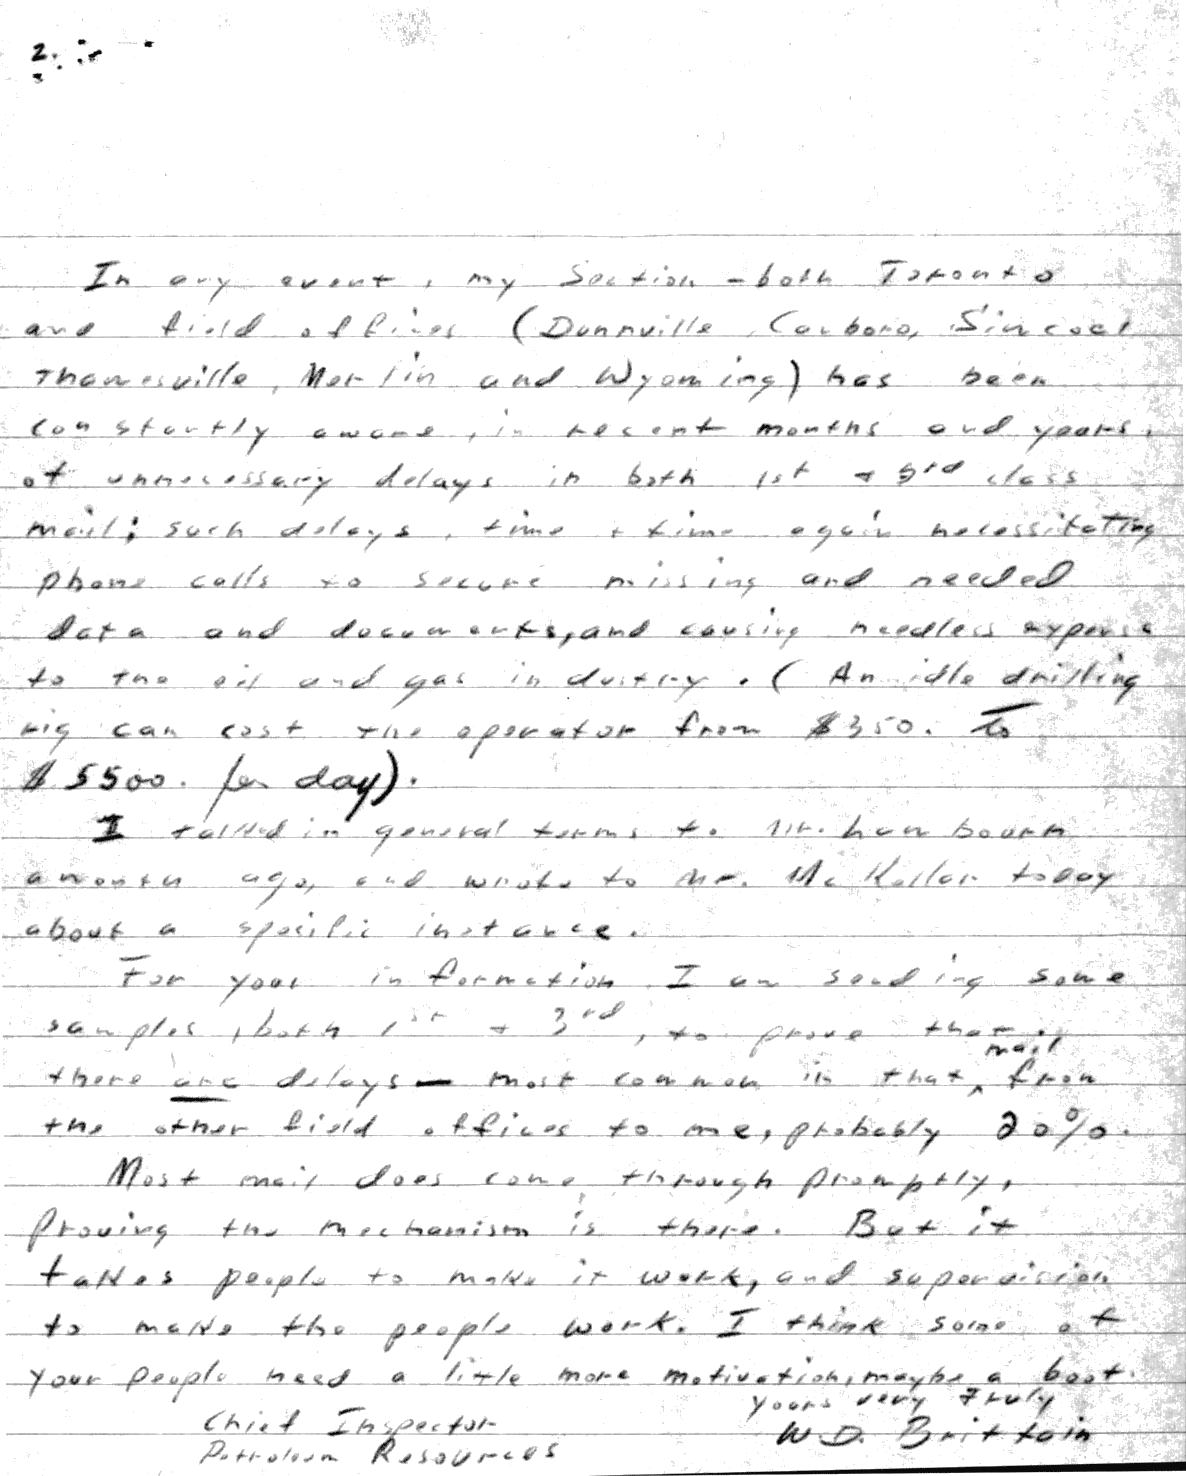 2.
In any event, my Section - both Toronto
and field offices (Dunnville, Caxboro, Simcoe,
Thamesville, Merlin and Wyoming) has been
constantly aware, in recent months and years,
of unnecessary delays in both 1st + 3rd class
mail; such delays, time + time again necessitating
phone calls to secure missing and needed
data and documents, and causing needless expense
to the oil and gas industry. (An idle drilling
rig can cost the operator from $350. to
$5500. per day).
I talked in general terms to Mr.
a month ago, and wrote to Mr. McKellar today
about a specific instance.
For your information I am sending some
samples, both 1st + 3rd, to prove that
there are delays - most common in that mail from
the other field offices to me, probably 20%.
Most mail does come through promptly,
proving the mechanism is there. But it
takes people to make it work, and supervision
to make the people work. I think some of
your people need a little more motivation, maybe a boot.
Yours very truly
Chief Inspector W.D. Brittain
Petroleum Resources